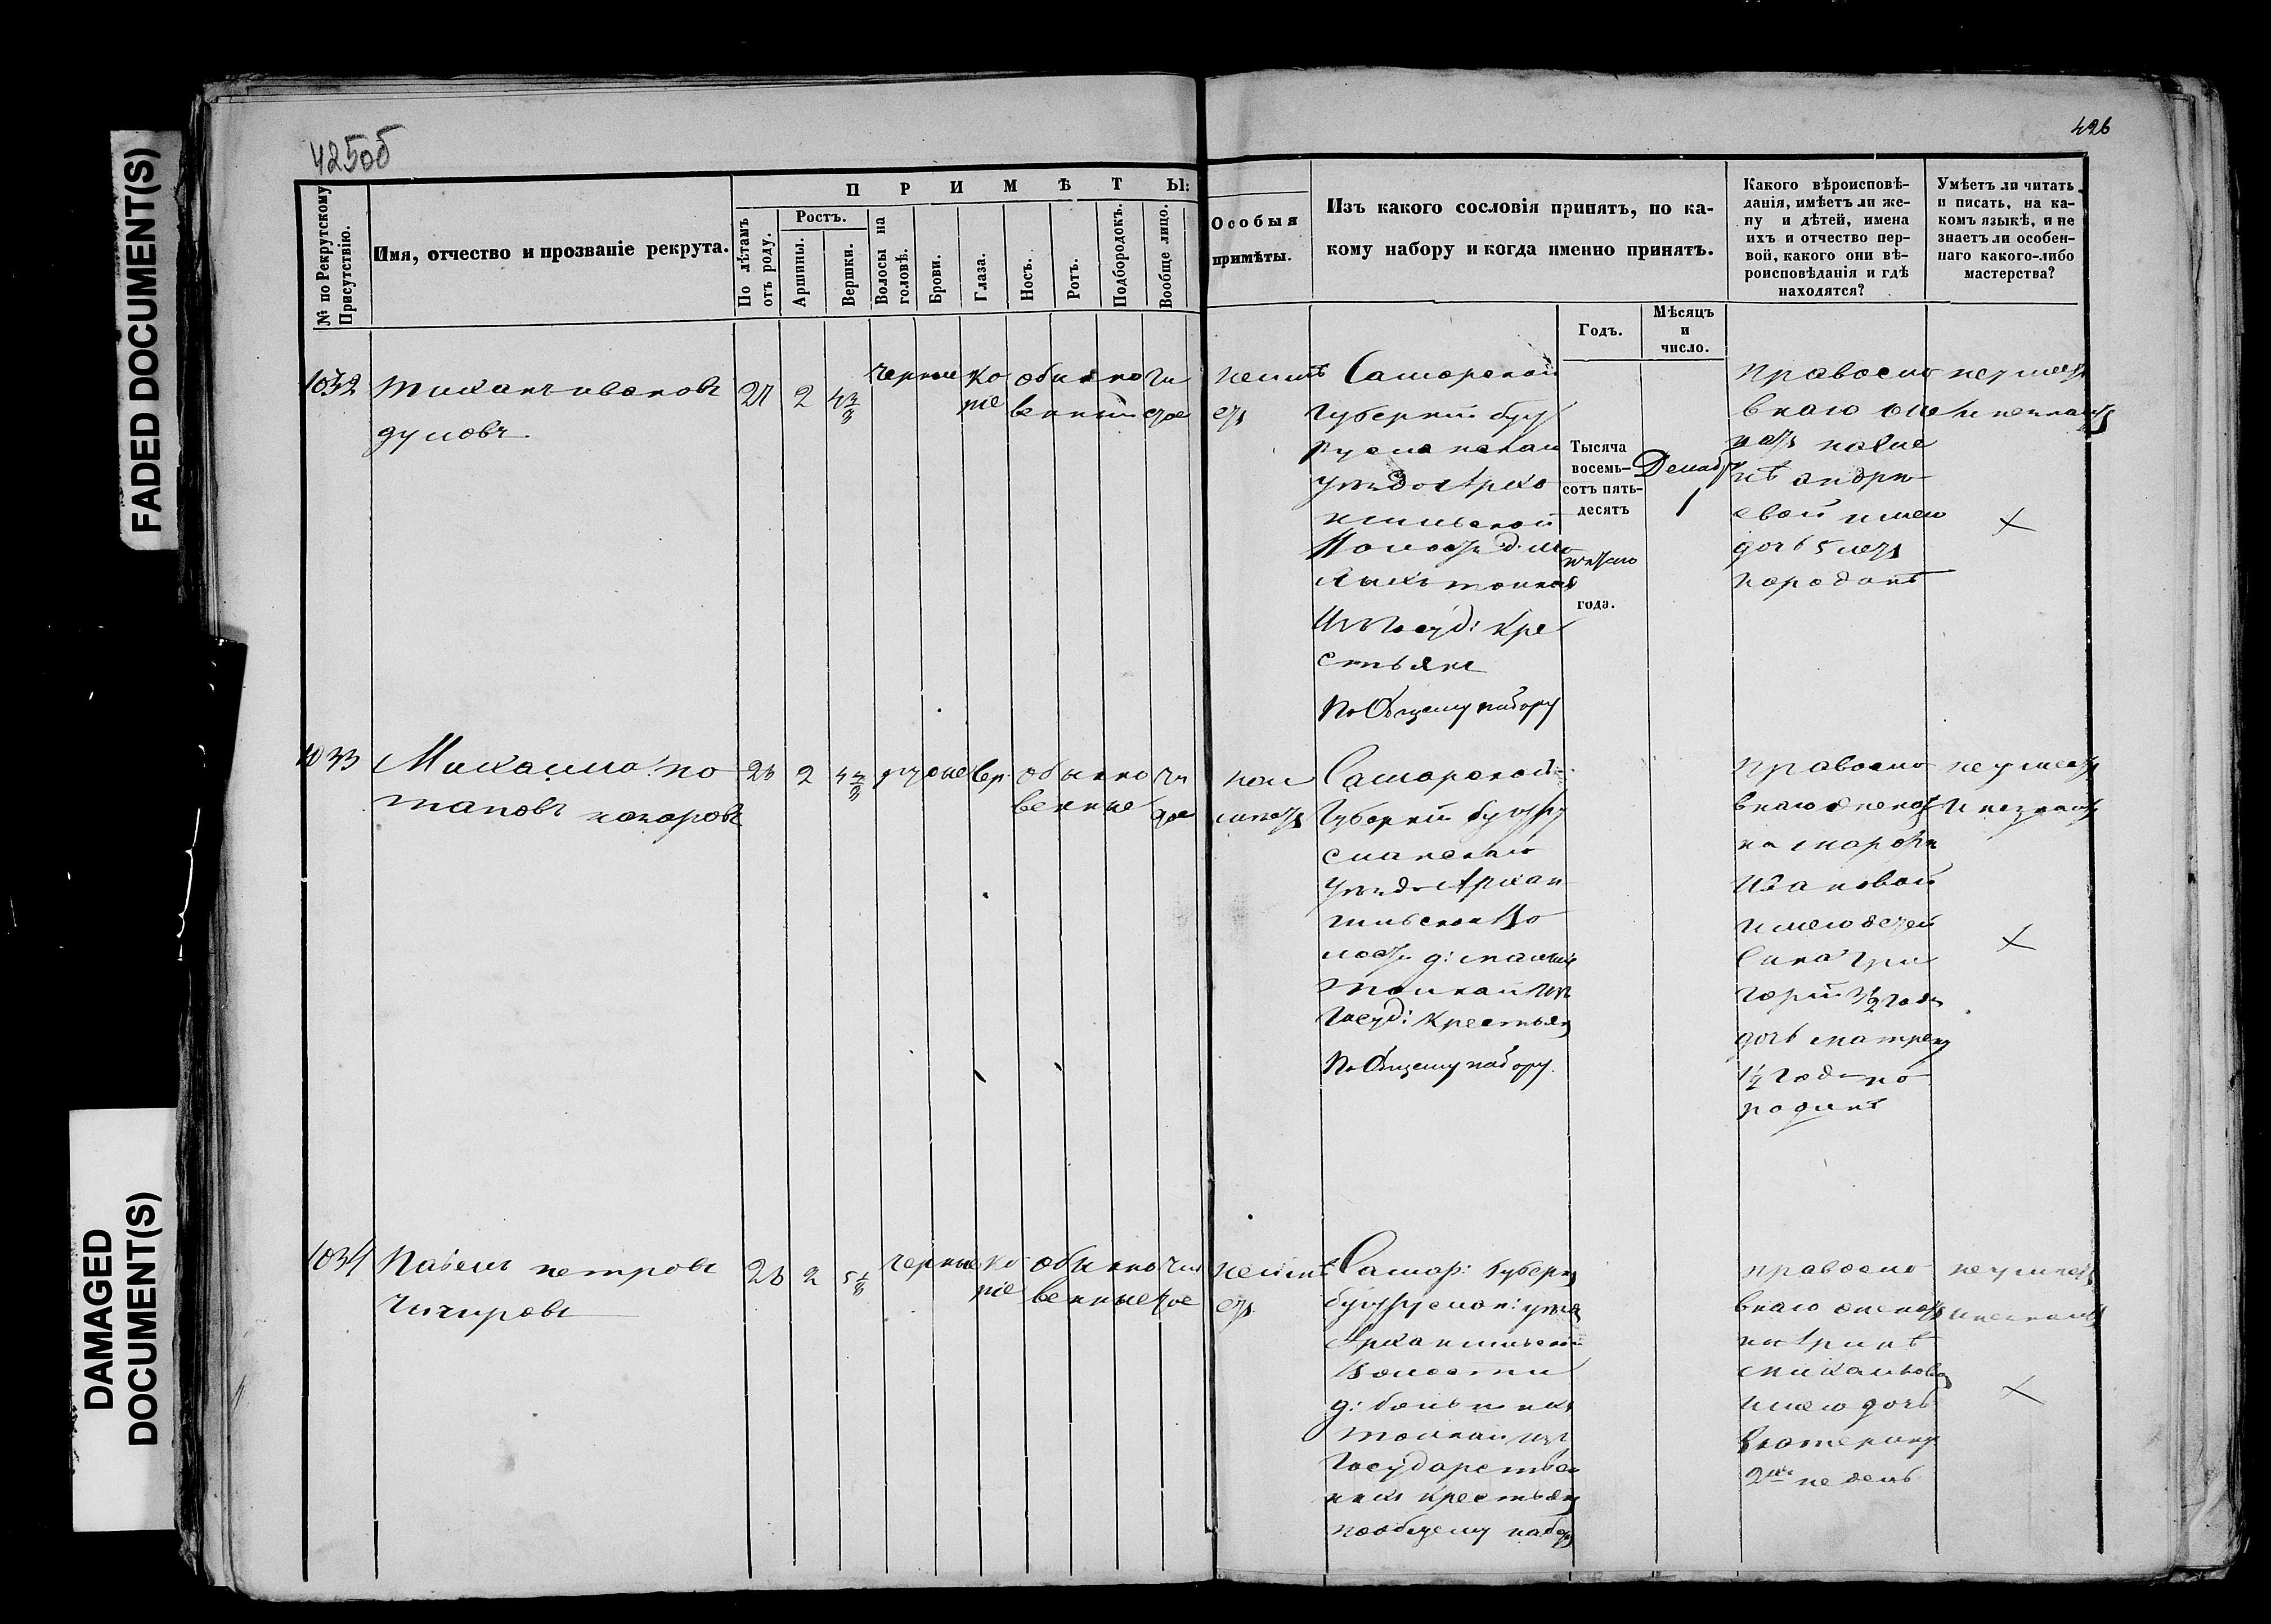 FADED DOCUMENT(S)
DAMAGED
DOCUMENT(S)
425об
426
№ по Рекрутскому
Присутствію.
Имя, отчество и прозваніе рекрута.
ПРИМѢТЫ:
По лѣтамъ
отъ роду.
Ростъ.
Аршины.
Вершки.
Волосы на
головѣ.
Брови.
Глаза.
Носъ.
Ротъ.
Подбородокъ.
Вообще лицо.
Особыя
примѣты.
Изъ какого сословія принятъ, по ка-
кому набору и когда именно принятъ.
Годъ.
Мѣсяцъ
и
число.
Какого вѣроисповѣ-
данія, имѣетъ ли же-
ну и дѣтей, имена
ихъ и отчество пер-
вой, какого они вѣ-
роисповѣданія и гдѣ
находятся?
Умѣетъ ли читать
и писать, на ка-
комъ языкѣ, и не
знаетъ ли особен-
наго какого-либо
мастерства?
1032
ивановъ
21
2
черные
ка
ріе
обыкно
венный
чи
стое
неимѣ
етъ
Самарской
Губерніи бугу
русланскаго
уѣзда Архан
гильской
Волости д.
толкай
Изъ Госуд: кре
стьянъ
По Общему набору
Тысяча
восемь-
сотъ пять-
десятъ
пятаго
года.
Декабр
1
правосла
внаго
андре
евой имею
дочь 5 летъ
народинѣ
неумеетъ
и незнаетъ
×
1033
Михаила по
таповъ
2
русые
обыкно
венные
чи
стое
неи
меетъ
Самарской
Губерніи бугуру
сланскаго
уѣзда Архан
гильской Во
лости д: малый
толкай изъ
Госуд: Крестьянъ
По Общему набору.
правосла
внаго женатъ
на
Ивановой
имею детей
сына Гри
горія
дочь матрену
1½ года на
родинѣ
неумеетъ
и незнаетъ
×
1034
Павелъ петровъ
Чигировъ
2
черные
ка
ріе
обыкно
венные
чис
тое
неимѣ
етъ
Самар: Губерн
бугуруслан: уѣзд
Архангильской
Волости
д: большой
толкай изъ
Государствен
ныхъ крестьянъ
пообщему набору
правосла
внаго женатъ
на Аринѣ
михайловой
имею дочь
Екатерину
2хъ недель
неумеетъ
и незнаетъ
×